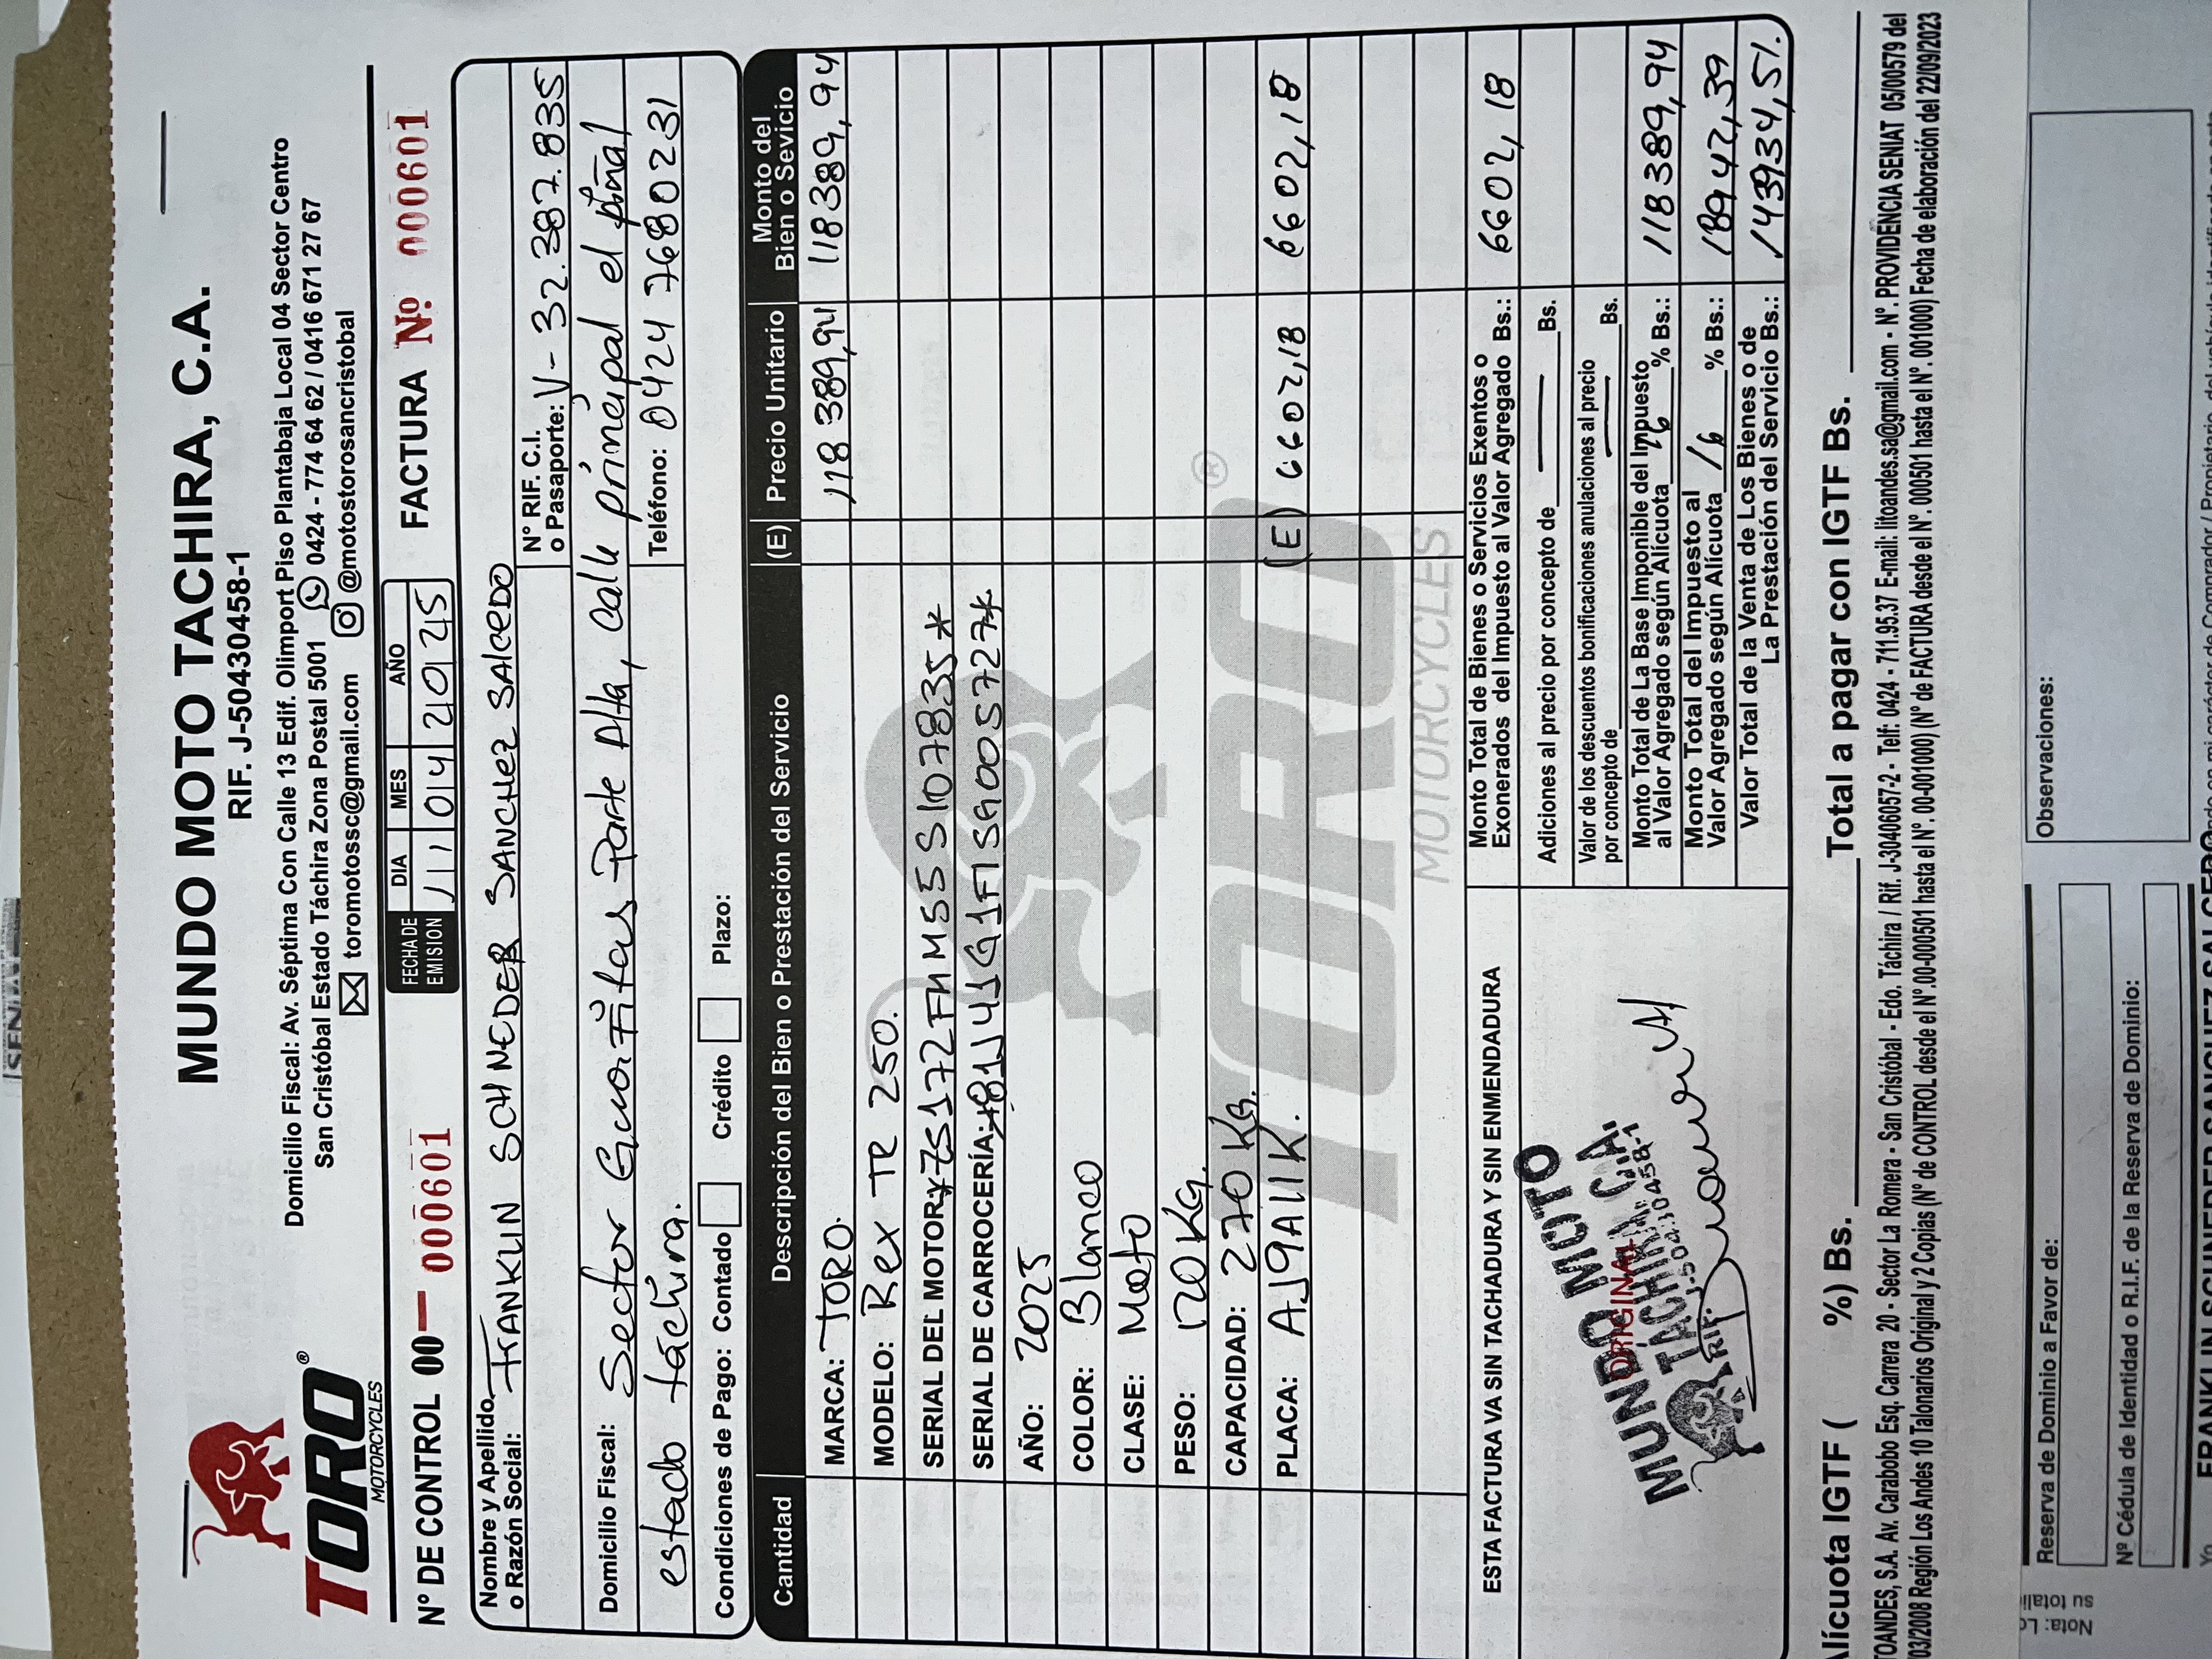 MUNDO MOTO TACHIRA, C.A.
RIF. J-50430458-1
TORO®
MOTORCYCLES
Domicilio Fiscal: Av. Séptima Con Calle 13 Edif. Olimport Piso Plantabaja Local 04 Sector Centro
San Cristóbal Estado Táchira Zona Postal 5001 0424 - 774 64 62 / 0416 671 27 67
toromotossc@gmail.com @motostorosancristobal
Nº DE CONTROL 00 — 000601
FECHA DE EMISION
DIA MES AÑO
11 04 2025
FACTURA Nº 000601
Nombre y Apellido o Razón Social: FRANKLIN SCHNEDER SANCHEZ SALCEDO
N° RIF. C.I. o Pasaporte: V- 32.387.835
Domicilio Fiscal: Sector Guafitas Parte Alta, calle principal el piñal
estado táchira.
Teléfono: 0424 7680231
Condiciones de Pago: Contado Crédito Plazo:
Cantidad Descripción del Bien o Prestación del Servicio (E) Precio Unitario Monto del Bien o Sevicio
MARCA: TORO. 118389,94 118389,94
MODELO: Rex TR 250.
SERIAL DEL MOTOR: *ZS172FMM5S107835*
SERIAL DE CARROCERÍA: *
AÑO: 2025
COLOR: Blanco
CLASE: Moto
PESO: 120 Kg.
CAPACIDAD: 270 Kg.
PLACA: AJ9A11K. (E) 6602,18 6602,18
TORO®
MOTORCYCLES
ESTA FACTURA VA SIN TACHADURA Y SIN ENMENDADURA
Monto Total de Bienes o Servicios Exentos o
Exonerados del Impuesto al Valor Agregado Bs.: 6602,18
Adiciones al precio por concepto de Bs.
Valor de los descuentos bonificaciones anulaciones al precio
por concepto de Bs.
Monto Total de La Base Imponible del Impuesto
al Valor Agregado según Alícuota 16 % Bs.: 118389,94
Monto Total del Impuesto al
Valor Agregado según Alícuota 16 % Bs.: 18942,39
Valor Total de la Venta de Los Bienes o de
La Prestación del Servicio Bs.: 143934,51.
MUNDO MOTO
TACHIRA C.A.
RIF: J-50430458-1
ORIGINAL
Alícuota IGTF ( %) Bs. Total a pagar con IGTF Bs.
TOANDES, S.A. Av. Carabobo Esq. Carrera 20 - Sector La Romera - San Cristóbal - Edo. Táchira / Rif. J-30406057-2 - Telf: 0424 - 711.95.37 E-mail: litoandes.sa@gmail.com - N°. PROVIDENCIA SENIAT 05/00579 del
03/2008 Región Los Andes 10 Talonarios Original y 2 Copias (N° de CONTROL desde el N°.00-000501 hasta el N°. 00-001000) (N° de FACTURA desde el N°. 000501 hasta el N°. 001000) Fecha de elaboración del 22/09/2023
Reserva de Dominio a Favor de:
Observaciones:
Nº Cédula de Identidad o R.I.F. de la Reserva de Dominio:
Nota: Lo
su totali
FRANKLIN SCHNEDER SANCHEZ SALCEDO